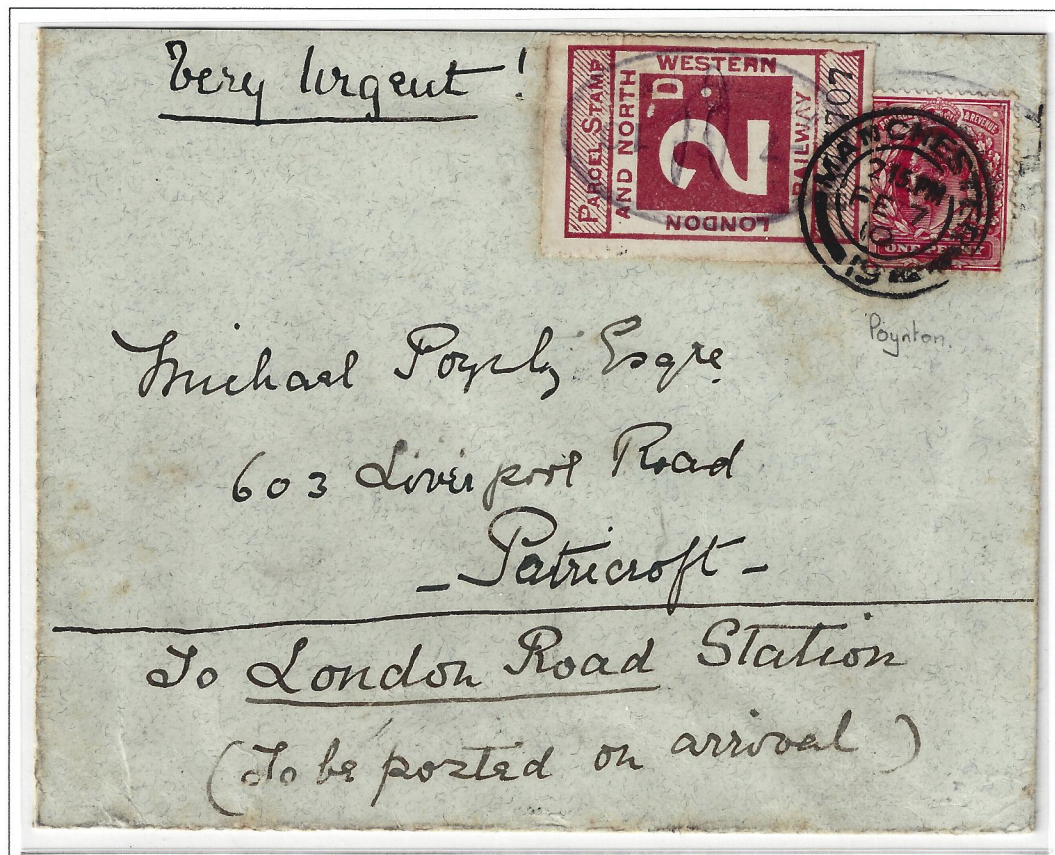 Very Urgent!
PARCEL STAMP
LONDON AND NORTH WESTERN RAILWAY
2D
707
& REVENUE
ONE PENNY
MANCHESTER
2 15 PM
FE 7
10
19
Poynton.
Michael Esqre
603 Liverpool Road
- Patricroft -
To London Road Station
(To be posted on arrival)